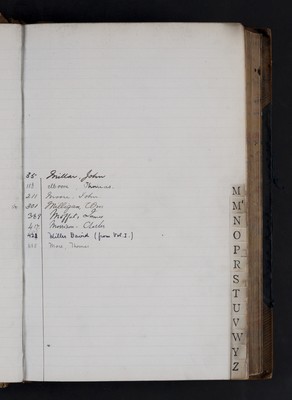 85 Millar, John
118 Moore, Thomas.
211 Moore, John
301 Milligan,
389 Moffat,
417 Morison, Charles
421 Miller David (from Vol. I.)
More, Thomas
M
Mc
N
O
P
R
S
T
U
V
W
Y
Z